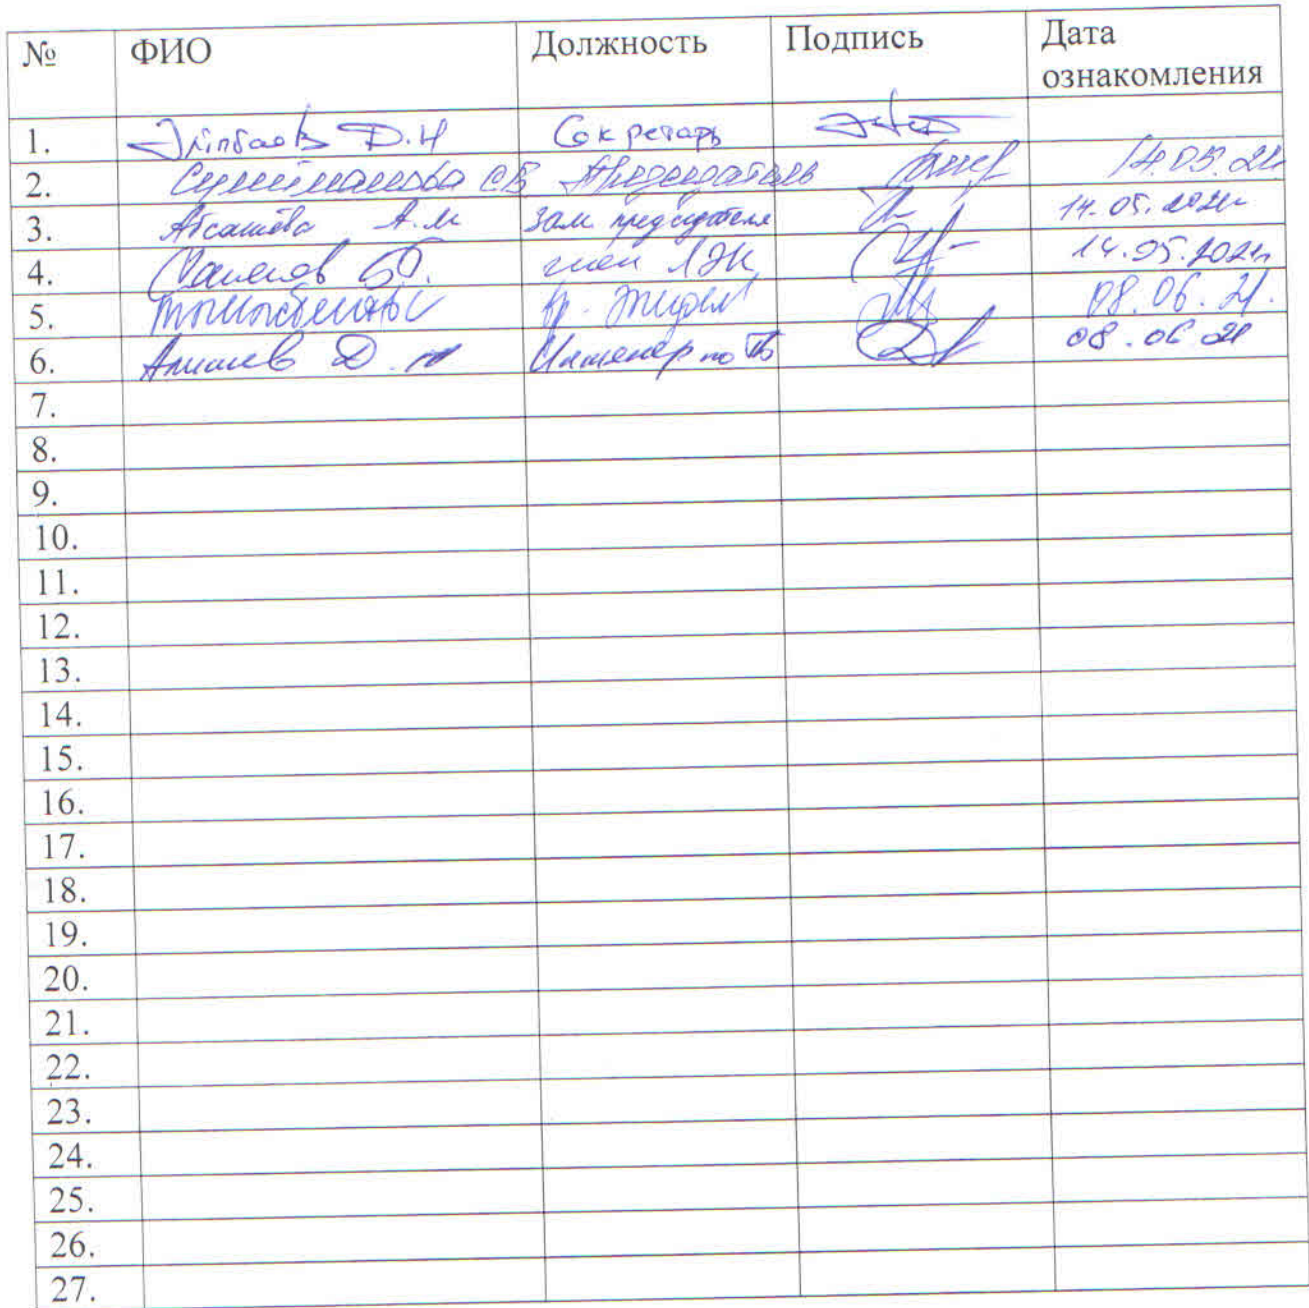 № ФИО Должность Подпись Дата ознакомления
1. Д.Н Секретарь
2. Сулейманова СВ Председатель 14.05.21
3. А.М Зам. председателя 14.05.2021г
4. член ЛЭК 14.05.2021г
5. 08.06.21.
6. Д. Инженер по ТБ 08.06.21
7.
8.
9.
10.
11.
12.
13.
14.
15.
16.
17.
18.
19.
20.
21.
22.
23.
24.
25.
26.
27.